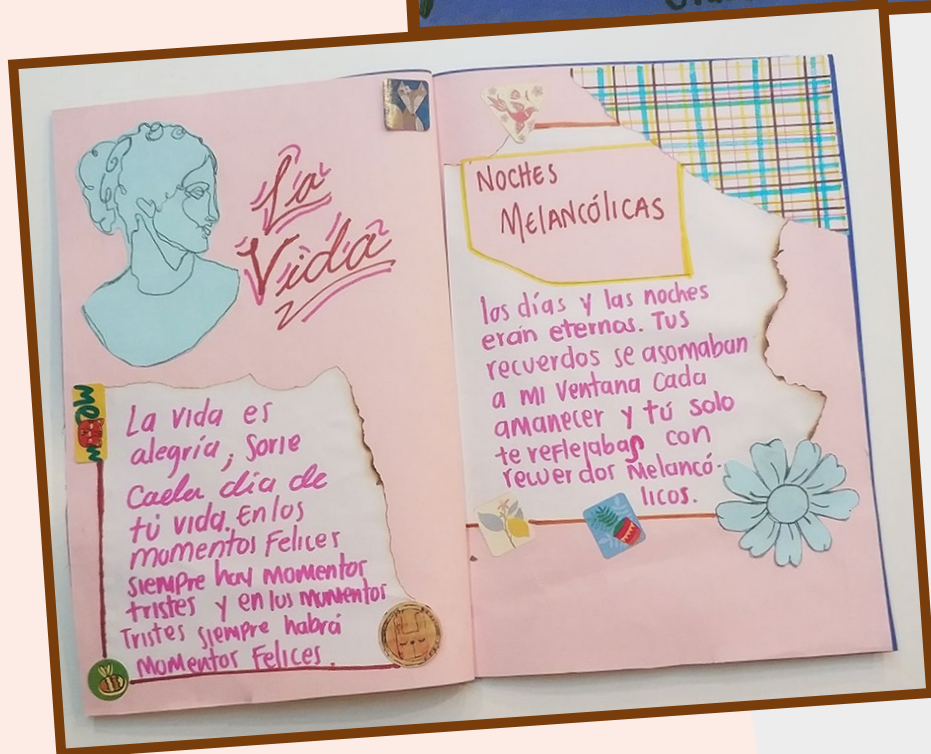 La
Vida
La vida es
alegría, sorie
Cada día de
tú vida. En los
momentos Felices
siempre hay momentos
tristes y en los momentos
Tristes siempre habrá
Momentos Felices.
NOCHES
MELANCÓLICAS
los días y las noches
erán eternos. Tus
recuerdos se asomaban
a mi Ventana Cada
amanecer y tú solo
te reflejabas con
recuerdos Melancó-
licos.